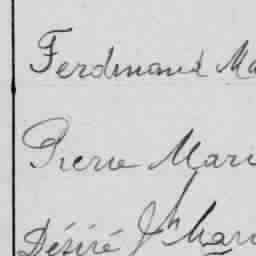 Ferdinand Ma
Pierre Mari
Désiré Jh Mari